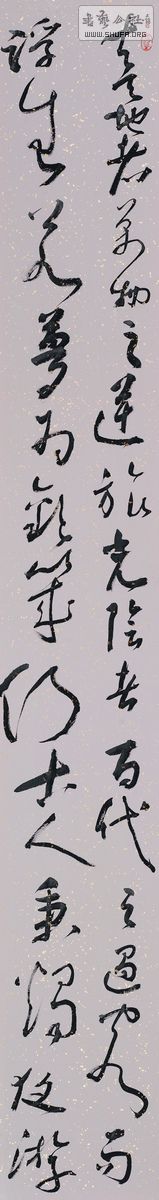 夫天地者萬物之逆旅光陰者百代之過客而
浮生若夢為歡幾何古人秉燭夜游
书艺公社
WWW.SHUFA.ORG